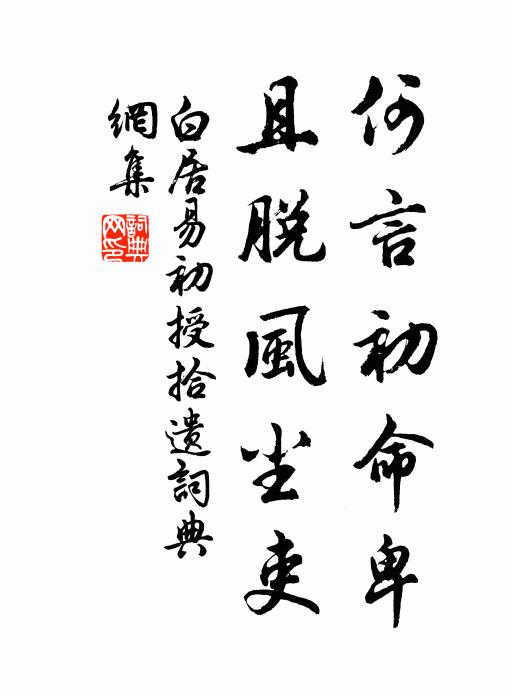 何言初命卑
且脫風塵吏
白居易初授拾遺詞典
網集
詞典
网印